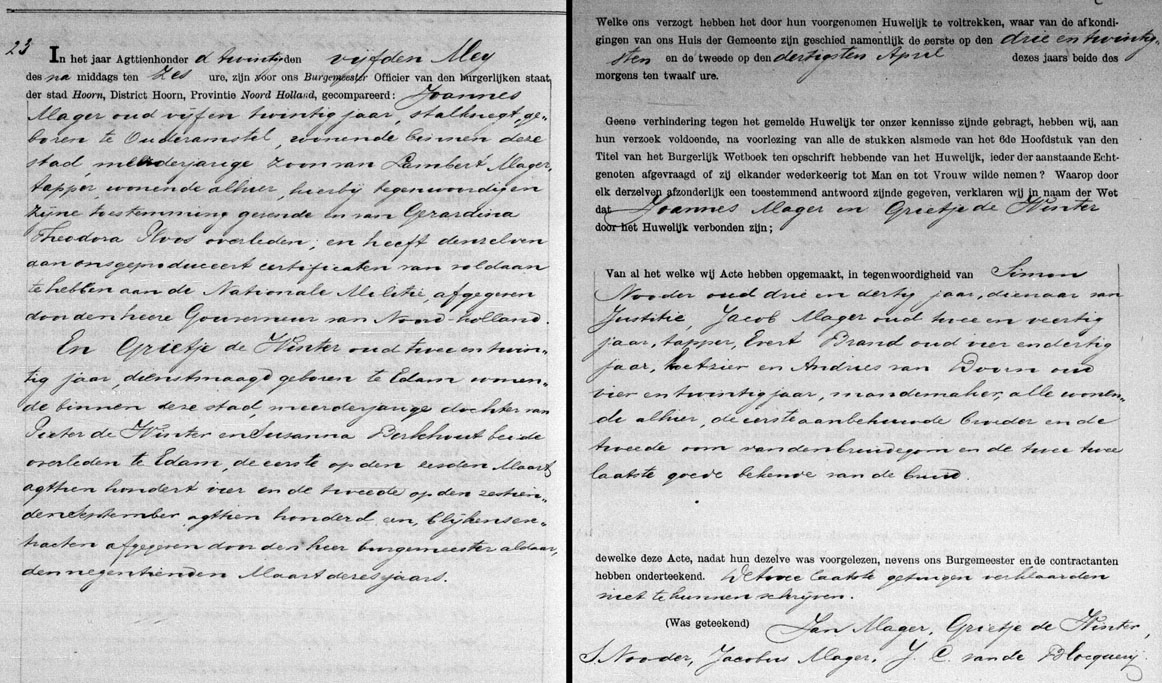 23
In het jaar Agttienhonder d twintig den vijfden Mey
des na middags ten zes ure, zijn voor ons Burgemeester Officier van den burgerlijken staat
der stad Hoorn, District Hoorn, Provintie Noord Holland, gecompareerd: Joannes
Mager oud vijf en twintig jaar, stalknegt, ge-
boren te Ouderamstel, wonende binnen deze
stad, meerderjarige zoon van Lambert Mager
tapper, wonende alhier, hierbij tegenwoordig en
zijne toestemming gevende en van Gerardina
Theodora Roos overleden; en heeft denzelven
aan ons geproduceert certificaten van voldaan
te hebben aan de Nationale Militie, afgegeven
door den heere Gouverneur van Noord-holland.
En Grietje de Winter oud twee en twin-
tig jaar, dienstmaagd geboren te Edam wonen-
de binnen deze stad, meerderjarige dochter van
Pieter de Winter en Susanna Berkhout beide
overleden te Edam, de eerste op den zesden Maart
agthien hondert vier en de tweede op den zestien-
den September agthien honderd en, blijkens ex-
tracten afgegeven door den heer burgemeester aldaar,
den negentienden Maart dezes jaars.
Welke ons verzogt hebben het door hun voorgenomen Huwelijk te voltrekken, waar van de afkondi-
gingen van ons Huis der Gemeente zijn geschied namentlijk de eerste op den drie en twintig-
sten en de tweede op den dertigsten April dezes jaars beide des
morgens ten twaalf ure.
Geene verhindering tegen het gemelde Huwelijk ter onzer kennisse zijnde gebragt, hebben wij, aan
hun verzoek voldoende, na voorlezing van alle de stukken alsmede van het 6de Hoofdstuk van den
Titel van het Burgerlijk Wetboek ten opschrift hebbende van het Huwelijk, ieder der aanstaande Echt-
genoten afgevraagd of zij elkander wederkeerig tot Man en tot Vrouw wilde nemen? Waarop door
elk derzelven afzonderlijk een toestemmend antwoord zijnde gegeven, verklaren wij in naam der Wet
dat Joannes Mager en Grietje de Winter
door het Huwelijk verbonden zijn;
Van al het welke wij Acte hebben opgemaakt, in tegenwoordigheid van Simon
Nooder oud drie en dertig jaar, dienaar van
Justitie, Jacob Mager oud twee en veertig
jaar, tapper, Evert Brand oud vier en dertig
jaar, koetzier en Andries van Doorn oud
vier en twintig jaar, mandemaker, alle wonen-
de alhier, de eerste aanbehuwde broeder en de
tweede oom van den bruidegom en de twee
laatste goede bekende van de bruid.
dewelke deze Acte, nadat hun dezelve was voorgelezen, nevens ons Burgemeester en de contractanten
hebben onderteekend. De twee laatste getuigen verklaarden
niet te kunnen schrijven.
(Was geteekend) Jan Mager, Grietje de Winter,
S Nooder, Jacobus Mager, J. C. van de Blocquery